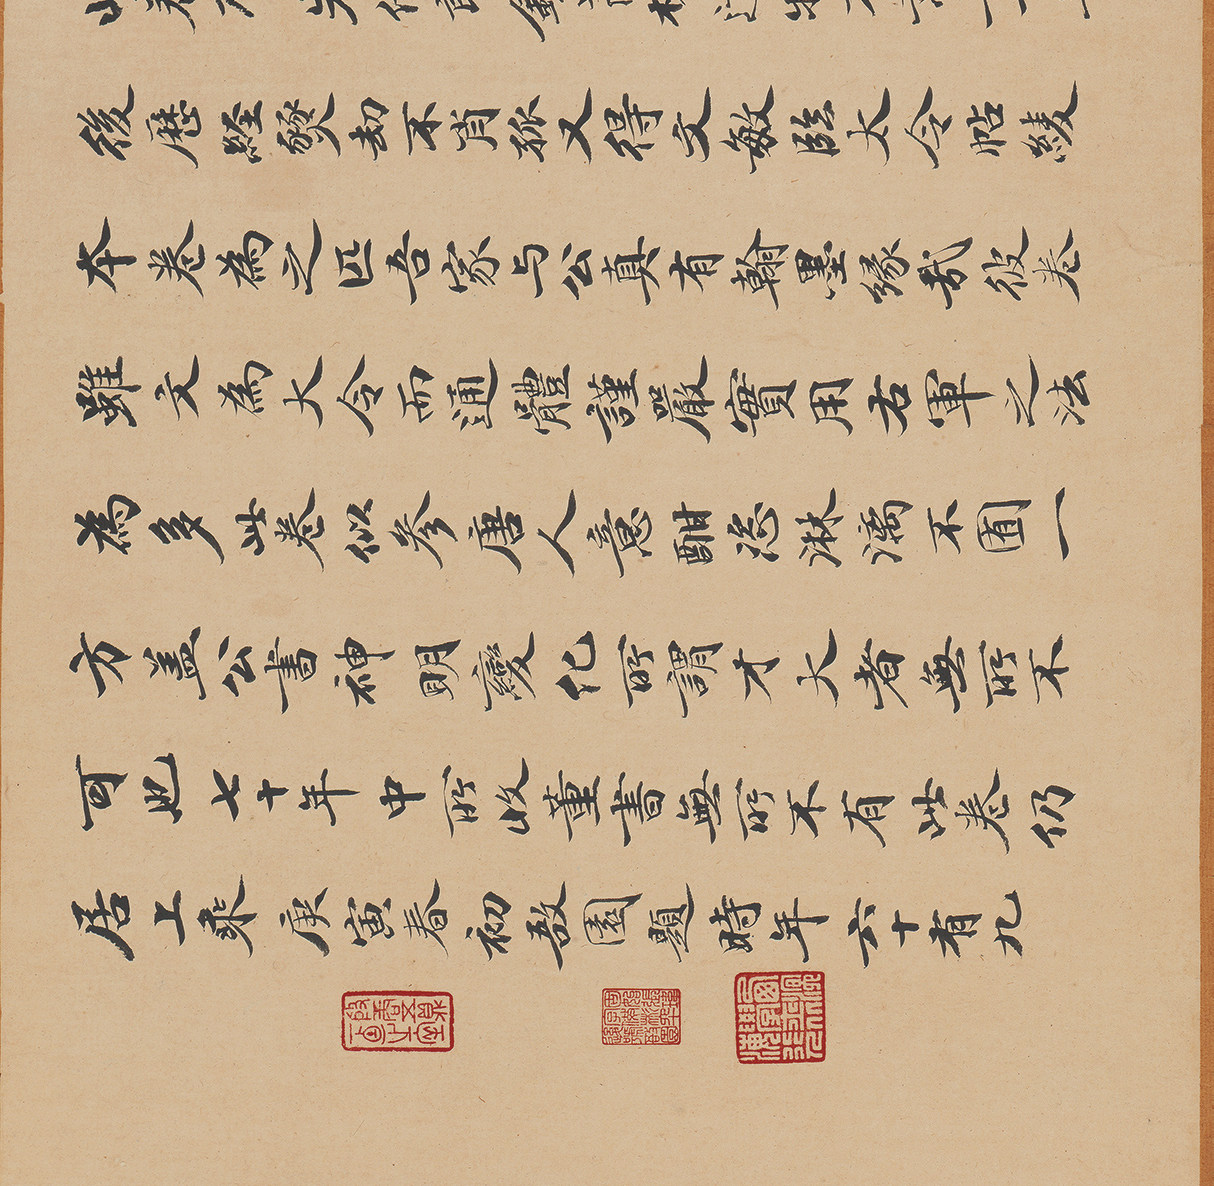 後歷經燹劫不肖孤又得文敏臨太令帖綾
本卷為之匹吾家与公真有翰墨緣哉彼卷
雖文為大令而通體謹嚴實用右軍之法
為多此卷似參唐人意酣恣淋漓不囿一
方盖公書神明變化所謂才大者無所不
可也七十年中所收董書無所不有此卷仍
居上乘庚寅春初敔園題時年六十有九